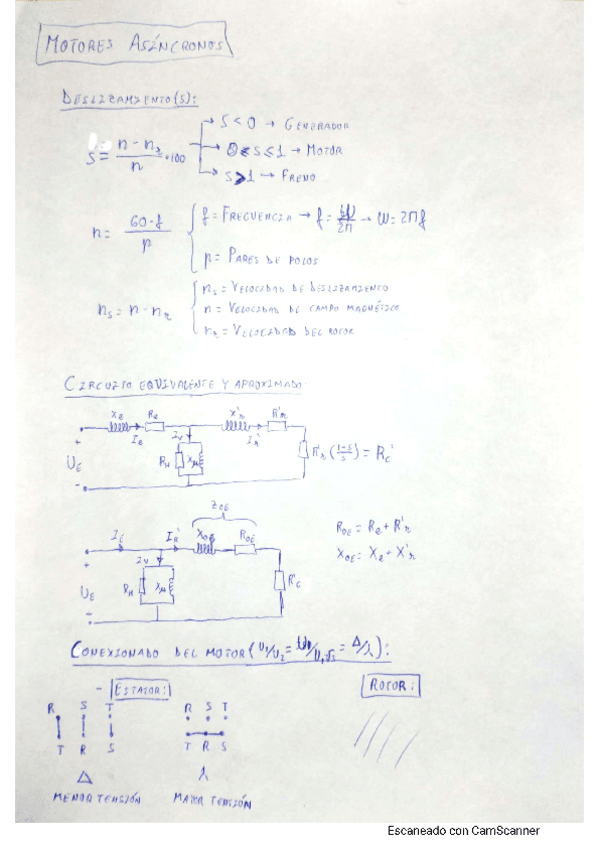 MOTORES ASÍNCRONOS
DESLIZAMIENTO(S):
S = (n - n₂)/n · 100
S < 0 → GENERADOR
0 ≤ S ≤ 1 → MOTOR
S > 1 → FRENO
n = 60·f / p
f = FRECUENCIA → f = W/2π → W = 2πf
p = PARES DE POLOS
nₛ = n - nᵣ
nₛ = VELOCIDAD DE DESLIZAMIENTO
n = VELOCIDAD DE CAMPO MAGNÉTICO
nᵣ = VELOCIDAD DEL ROTOR
CIRCUITO EQUIVALENTE Y APROXIMADO:
Xe Re X'r R'r
Ie Iv Ir'
+ UE -
RH Xμ
R'r (1-S/S) = Rc'
ZOE
IE IR' XOE ROE
Iv
+ UE -
RH Xμ
R'c
ROE = Re + R'r
XOE = Xe + X'r
CONEXIONADO DEL MOTOR (U₁/U₂ = U₁/U₁√3 = Δ/⅄):
- ESTATOR:
ROTOR:
R S T R S T
T R S T R S
Δ ⅄
MENOR TENSIÓN MAYOR TENSIÓN
Escaneado con CamScanner